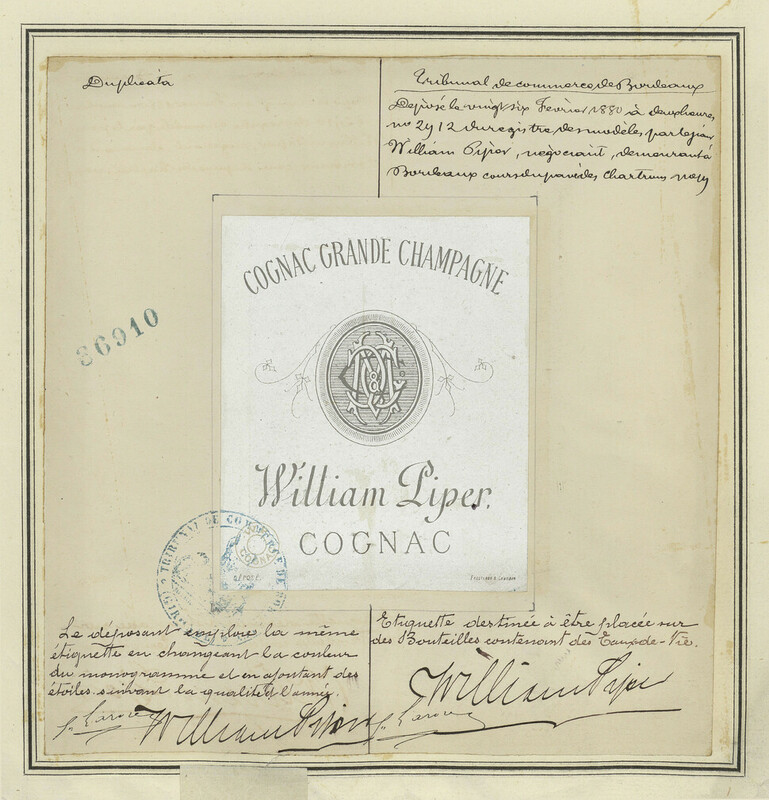 Duplicata
Tribunal de commerce de Bordeaux
Déposé le vingt six Février 1880 à deux heures
no 2912 du registre des modèles, par le sieur
William Piper, négociant, demeurant à
Bordeaux cours du pavé des Chartrons
36910
COGNAC GRANDE CHAMPAGNE
William Piper.
COGNAC
TRIBUNAL DE COMMERCE DE BOR
COGNAC
DÉPOSÉ
Le déposant emploie la même
étiquette en changeant la couleur
du monogramme et en ajoutant des
étoiles suivant la qualité et l'année.
William Piper
Etiquette destinée à être placée sur
des Bouteilles contenant des Eaux-de-Vie.
William Piper